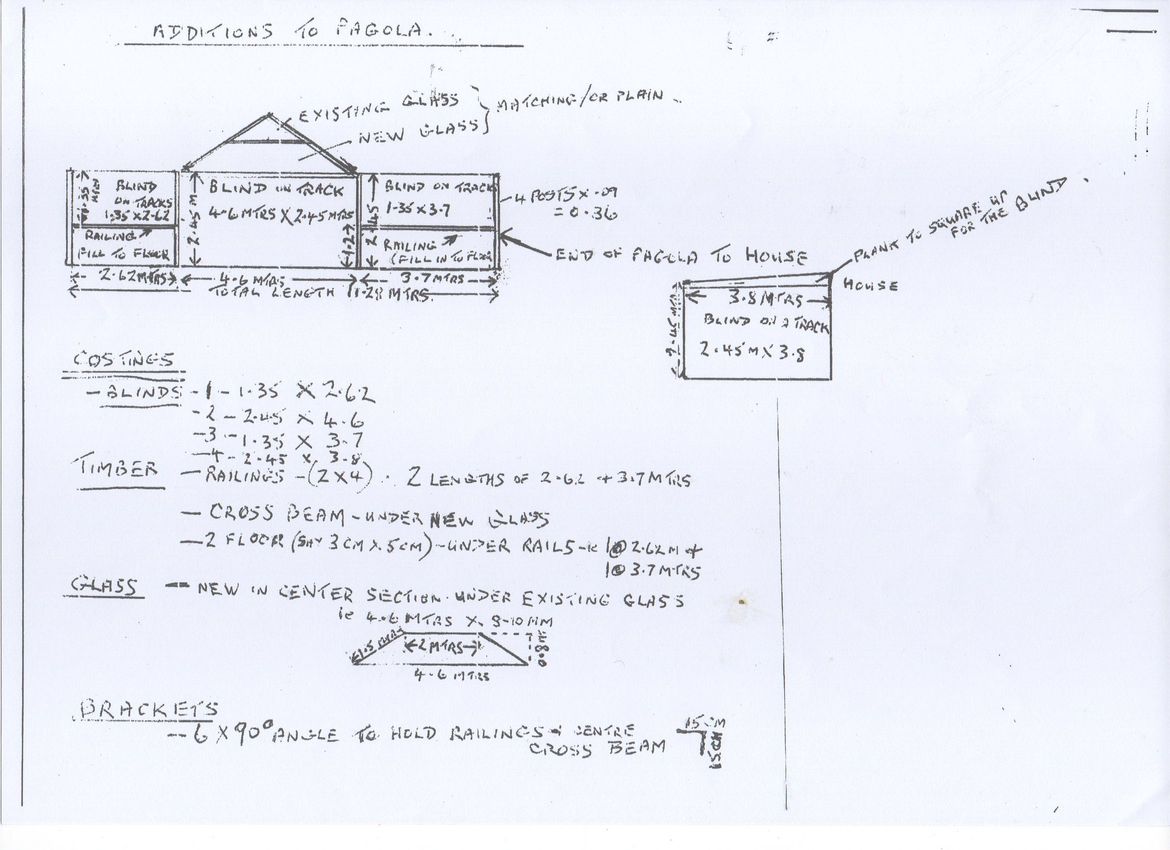 ADDITIONS TO PAGOLA.
EXISTING GLASS
NEW GLASS
MATCHING/OR PLAIN
1.35 MTR
BLIND
ON TRACKS
1.35 X 2.62
RAILING
FILL TO FLOOR
2.45 M
BLIND IN TRACK
4.6 MTRS X 2.45 MTRS
1.2
2.45
BLIND ON TRACK
1.35 X 3.7
RAILING
(FILL IN TO FLOOR
4 POSTS X .09
= 0.36
END OF PAGOLA TO HOUSE
2.62 MTRS
4.6 MTRS
3.7 MTRS
TOTAL LENGTH 11.28 MTRS.
PLANK TO SQUARE UP
FOR THE BLIND
HOUSE
3.8 MTRS
2.45 MTR
BLIND ON A TRACK
2.45 M X 3.8
COSTINGS
- BLINDS - 1 - 1.35 X 2.62
- 2 - 2.45 X 4.6
- 3 - 1.35 X 3.7
- 4 - 2.45 X 3.8
TIMBER - RAILINGS - (2 X 4) . 2 LENGTHS OF 2.62 + 3.7 MTRS
- CROSS BEAM - UNDER NEW GLASS
- 2 FLOOR (SAY 3 CM X 5 CM) - UNDER RAILS - ie 1 @ 2.62 M +
1 @ 3.7 MTRS
GLASS - NEW IN CENTER SECTION UNDER EXISTING GLASS
ie 4.6 MTRS X 8-10 MM
1.5 MTRS
2 MTRS
0.8 M
4.6 MTRS
BRACKETS
- 6 X 90° ANGLE TO HOLD RAILINGS + CENTRE
CROSS BEAM
15 CM
15 CM